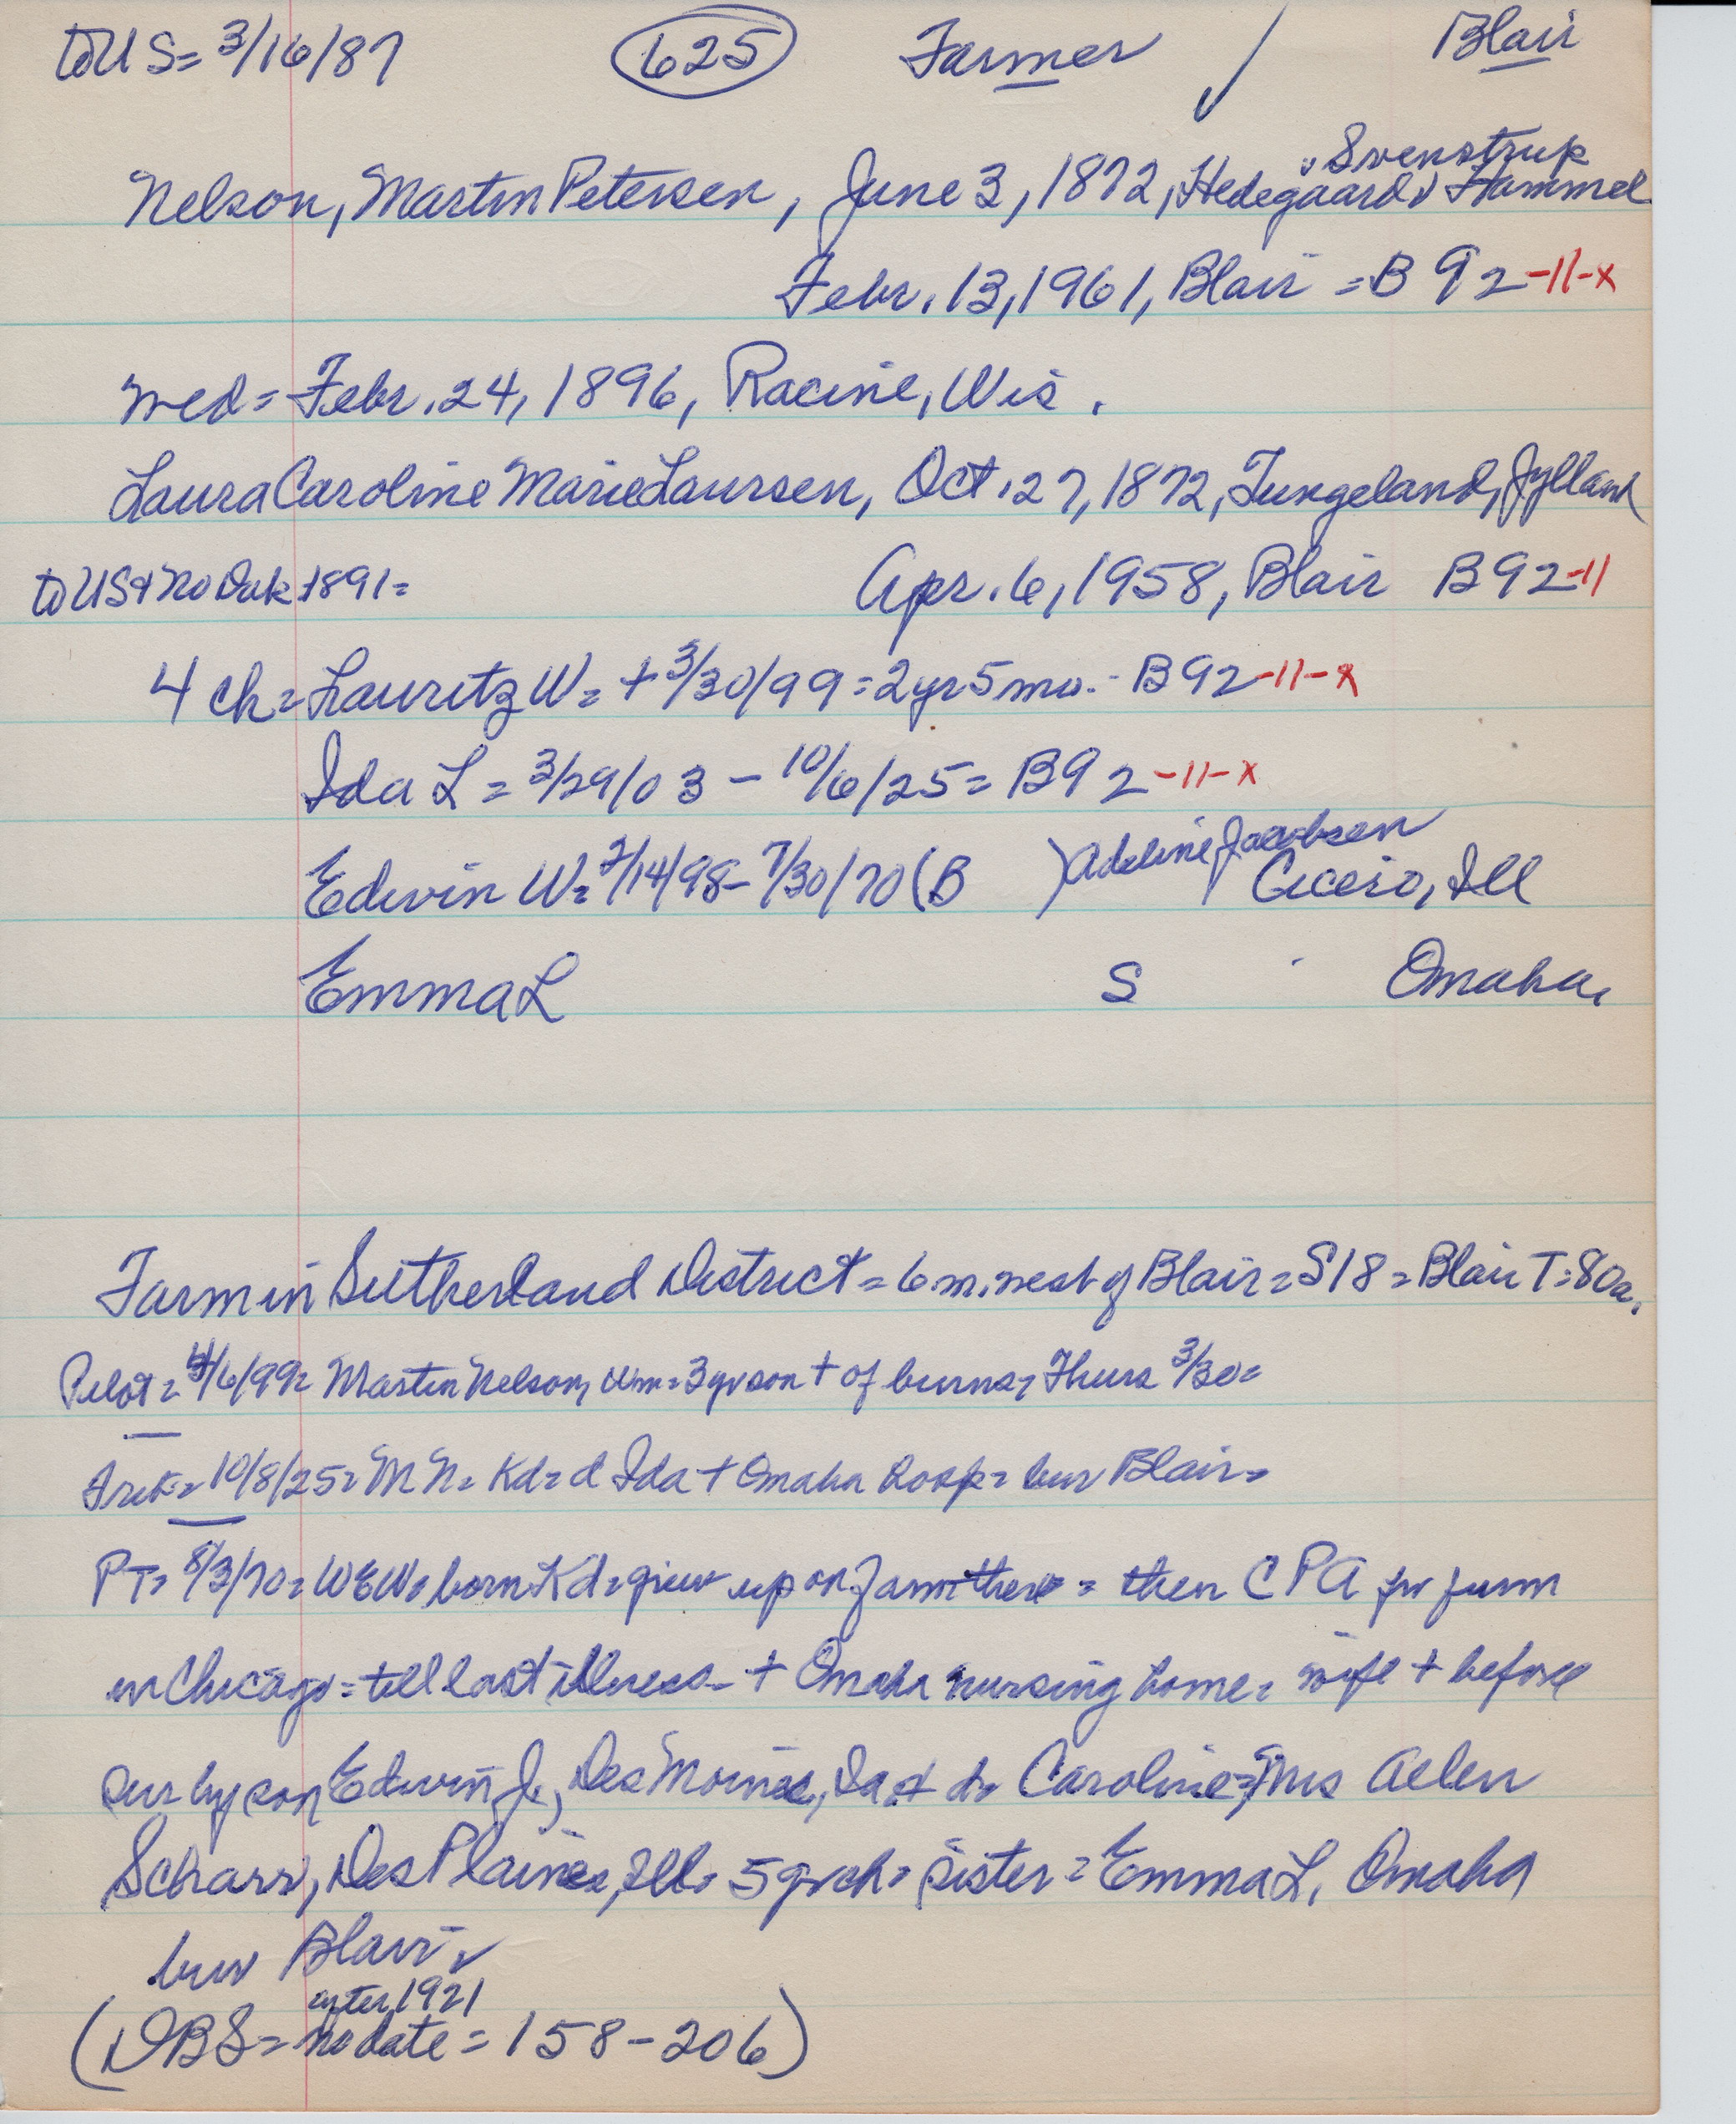 to US = 3/16/87 625 Farmer ✓ Blair
v Svenstrup
Nelson, Martin Petersen, June 3, 1872, Hedegaard v Hammel
Febr. 13, 1961, Blair = B 92-11-x
med = Febr. 24, 1896, Racine, Wis.
Laura Caroline Marie Laursen, Oct. 27, 1872, Tungeland, Jylland
to US + No Dak 1891 = Apr. 6, 1958, Blair B92-11
4 ch = Lauritz W = + 3/30/99 = 2 yr 5 mo. - B92-11-x
Ida L = 3/29/03 - 10/6/25 = B92-11-x
Edwin W = 2/14/98 - 7/30/70 (B ) Adeline Jacobsen Cicero, Ill
Emma L S Omaha.
Farm in Sutherland District = 6 m. west of Blair = S18 = Blair T = 80a.
Pilot = 4/6/99 = Martin Nelson, = 3 yr son + of burns, Thurs 3/30 =
= 10/8/25 = M N = Kd = d Ida + Omaha hosp = bur Blair =
PT = 8/3/70 = WEW = born Kd = grew up on farm there = then CPA for firm
in Chicago = till last illness - + Omaha nursing home = wife + before
sur by son Edwin J., Des Moines, Ia + d = Caroline = Mrs Allen
Scharr, Des Plaines, Ill = 5 grch = sister = Emma L, Omaha
bur Blair ✓
after 1921
(DBS = no date = 158-206)